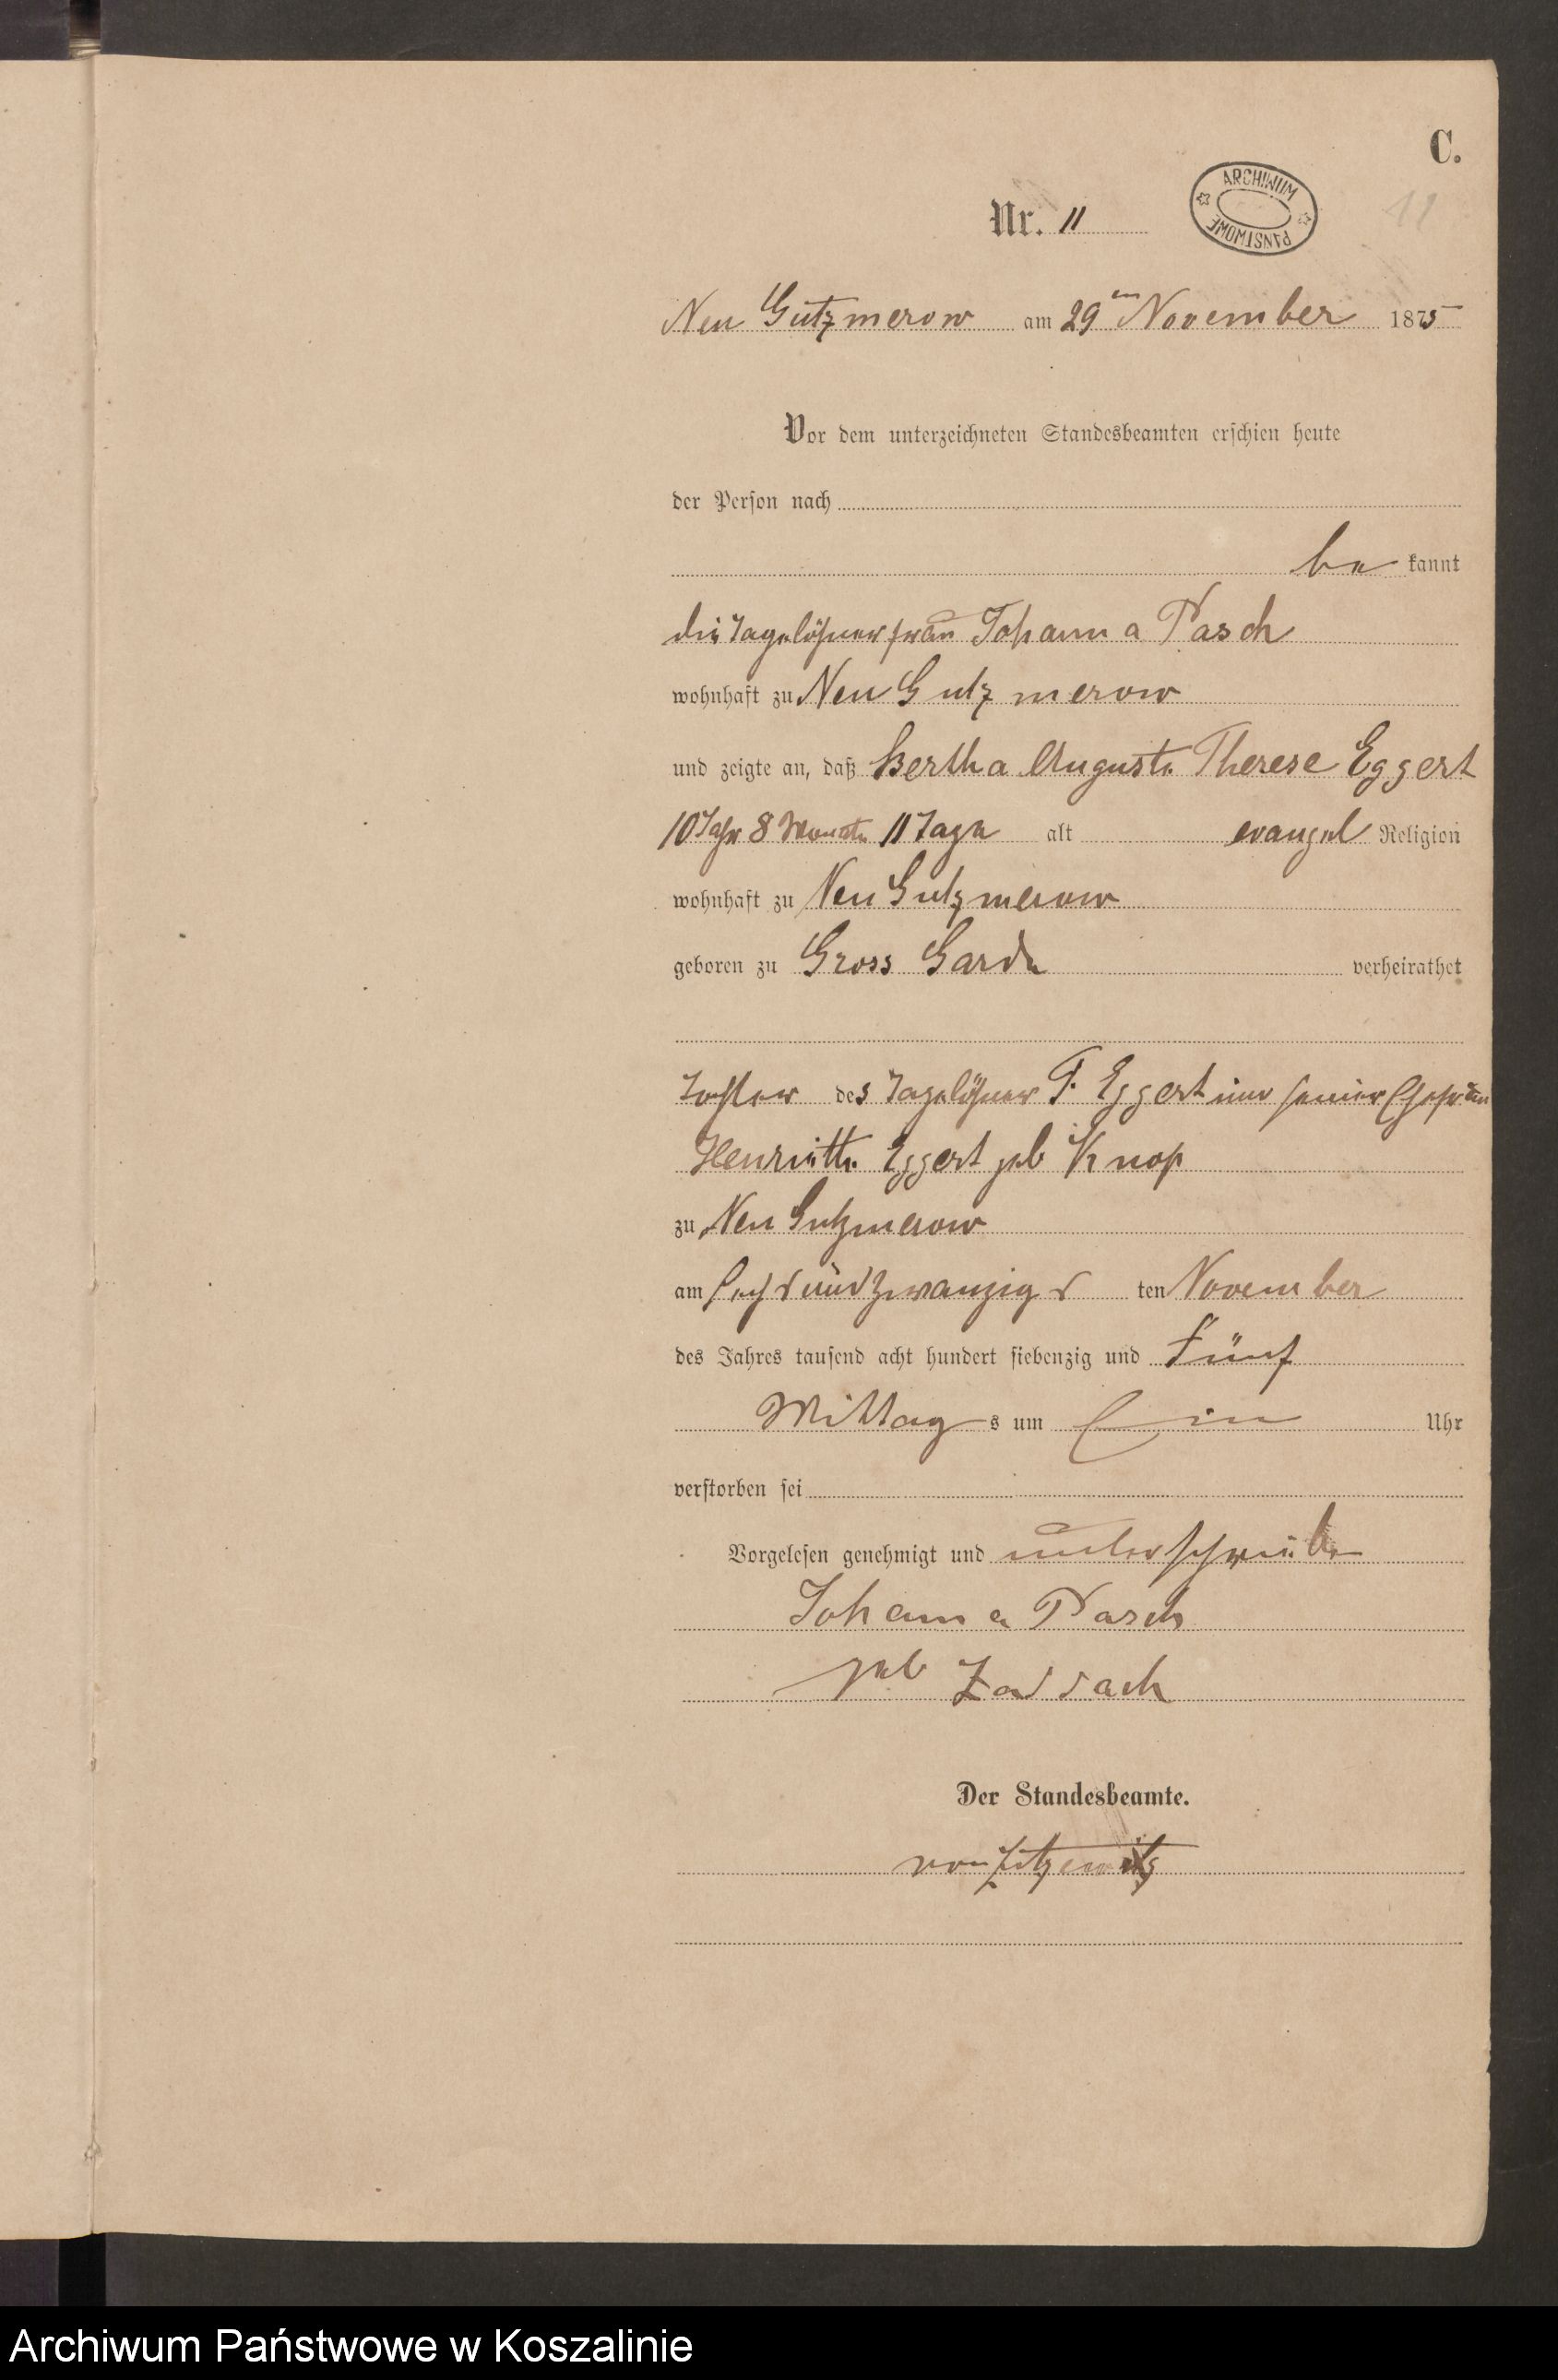 C.
Nr. 11
ARCHIWUM PAŃSTWOWE
11
Neu Gutzmerow am 29ten November 1875
Vor dem unterzeichneten Standesbeamten erschien heute
der Person nach
be kannt
die Tagelöhnerfrau Johanna Pasch
wohnhaft zu Neu Gutzmerow
und zeigte an, daß Bertha Auguste Therese Eggert
10 Jahr 8 Monate 11 Tage alt evangel Religion
wohnhaft zu Neu Gutzmerow
geboren zu Gross Garde verheirathet
Tochter des Tagelöhner F. Eggert und seiner Ehefrau
Henriette Eggert geb Knop
zu Neu Gutzmerow
am sechs und zwanzigs ten November
des Jahres tausend acht hundert siebenzig und fünf
Mittag s um Ein Uhr
verstorben sei
Vorgelesen genehmigt und unterschrieben
Johanna Pasch
geb
Der Standesbeamte.
von Zitzewitz
Archiwum Państwowe w Koszalinie